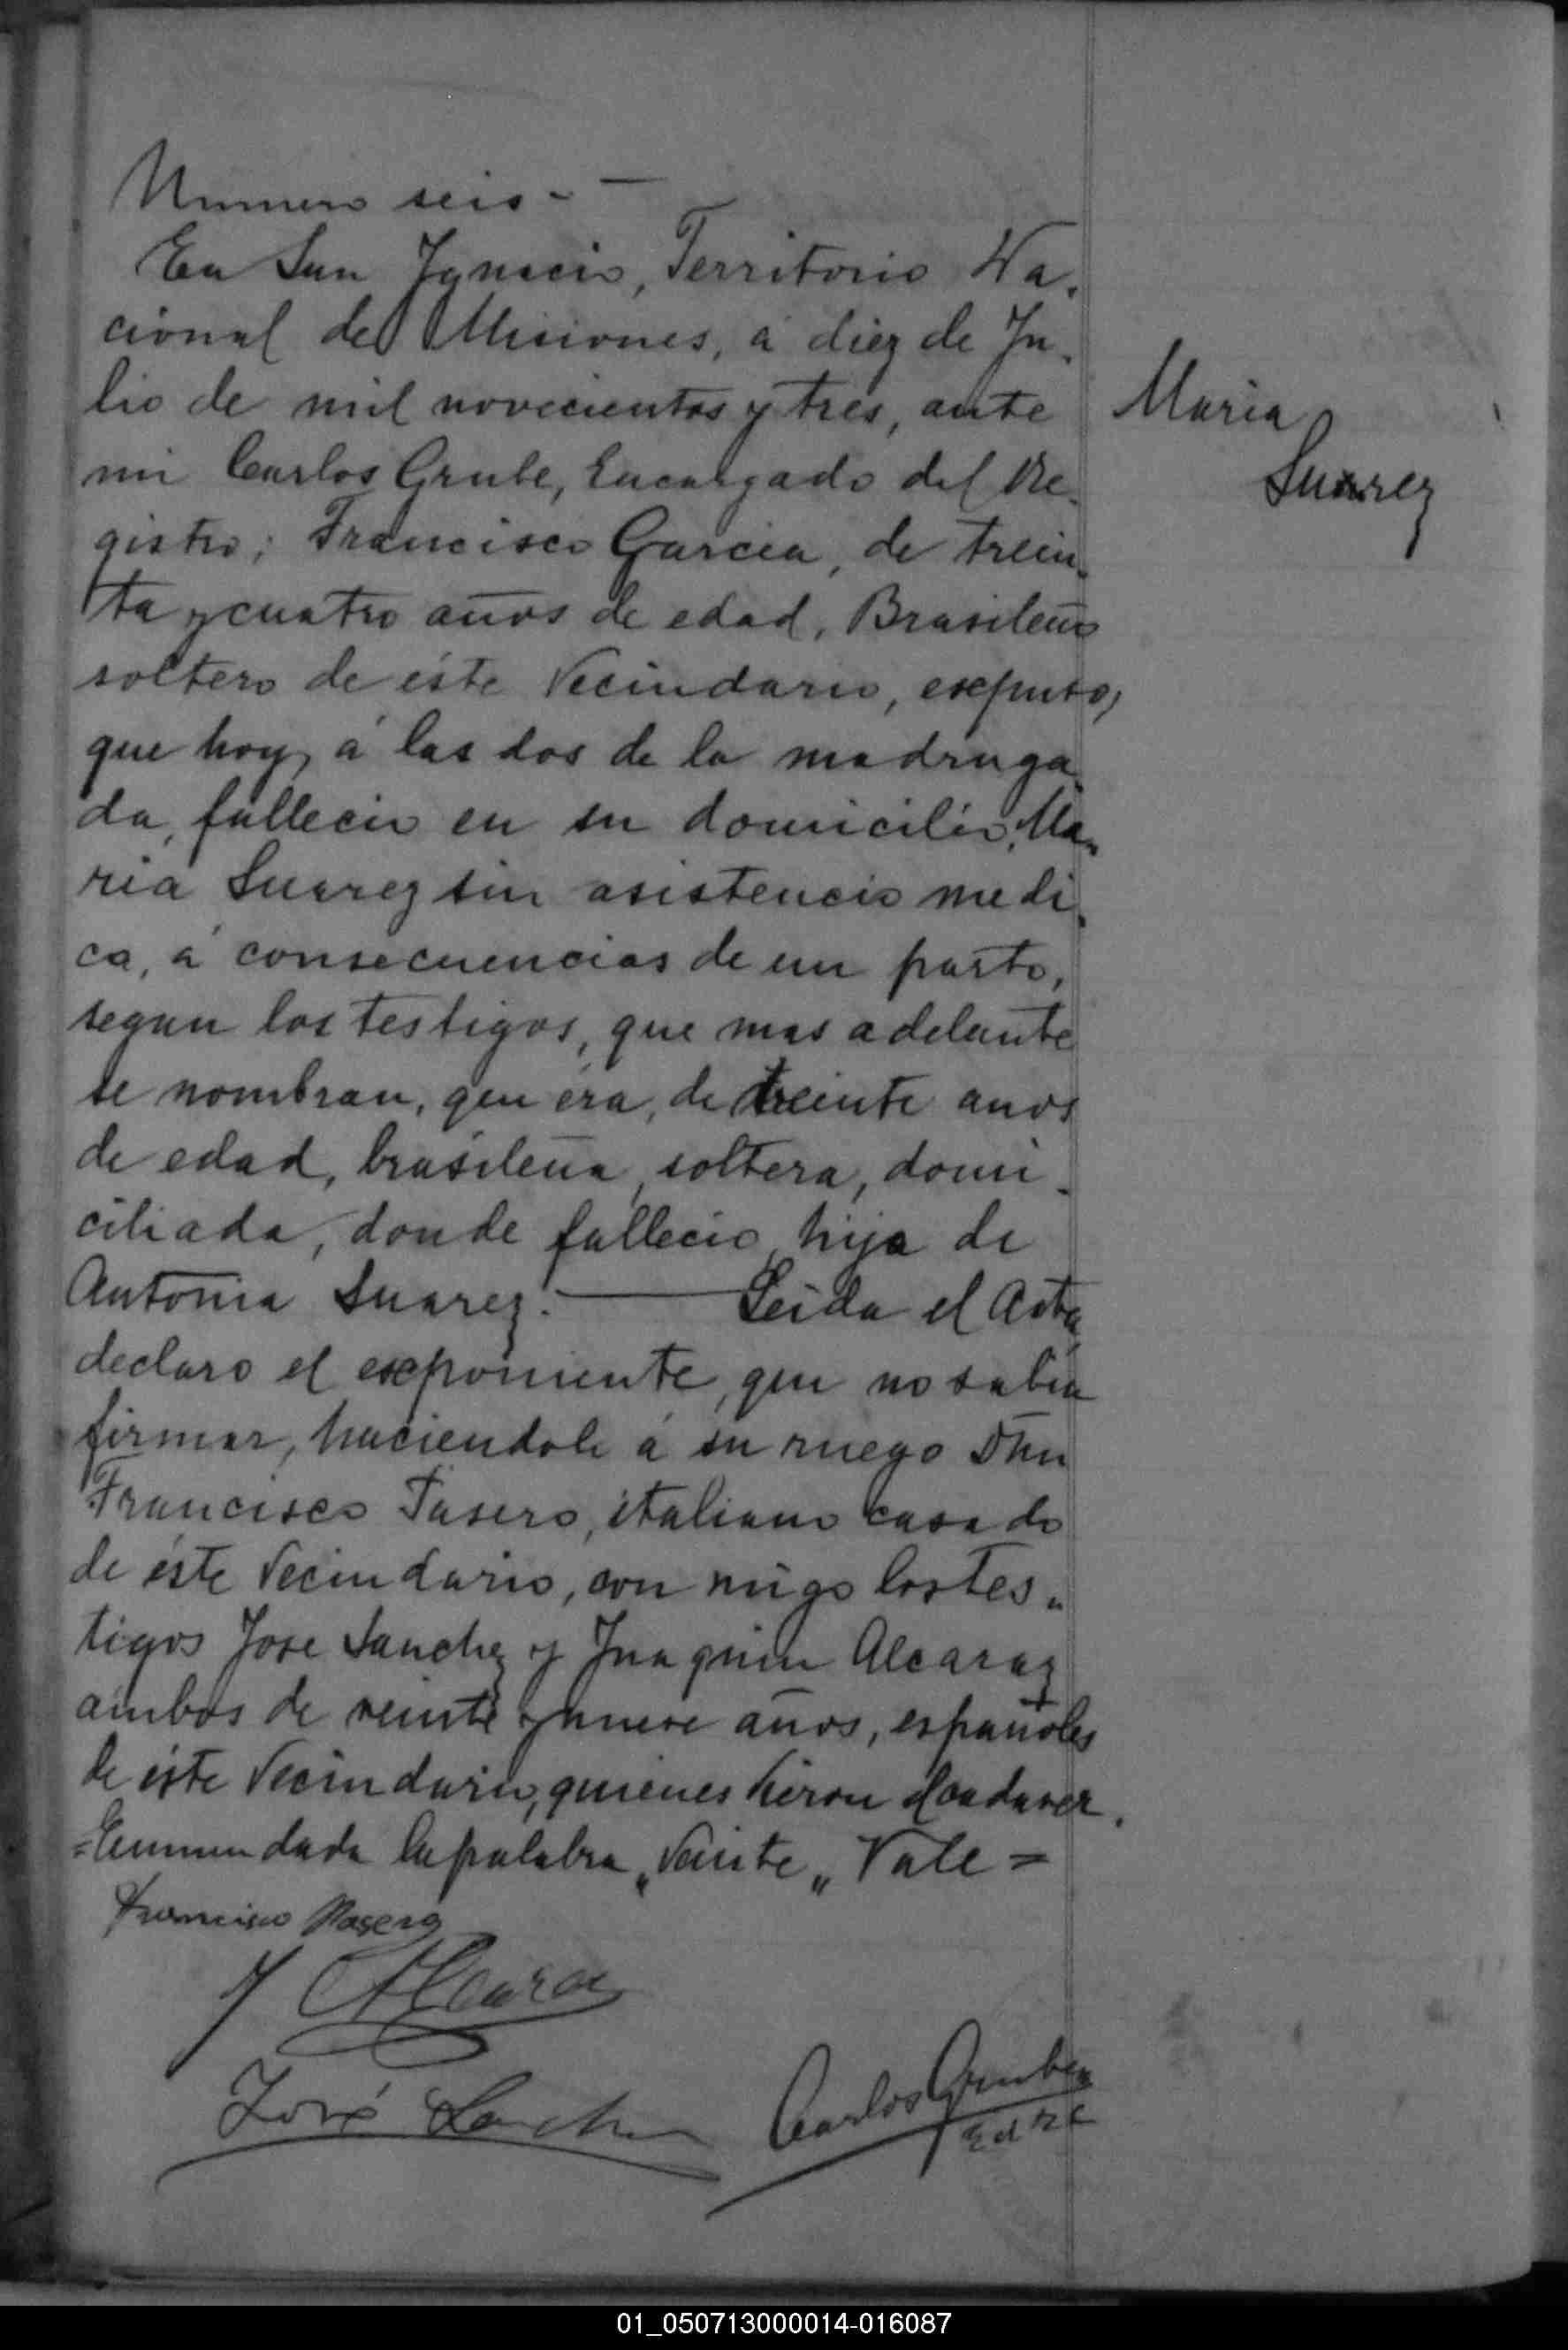 Numero seis - —
En San Ignacio, Territorio Na-
cional de Misiones, á diez de Ju-
lio de mil novecientos y tres, ante
mi Carlos Grube, Encargado del Re-
gistro; Francisco Garcia, de trein-
ta y cuatro años de edad, Brasileño
soltero de éste Vecindario, expuso,
que hoy, á las dos de la madruga-
da, fallecio en su domicilio, Ma-
ria Suarez sin asistencia medi-
ca, á consecuencias de un parto,
segun los testigos, que mas adelante
se nombran, que era, de veinte anos
de edad, brasileña, soltera, domi-
ciliada, donde fallecio, hija de
Antonia Suarez. — Leida el Acta,
declaro el exponiente, que no sabia
firmar, haciendole á su ruego Don
Francisco Pasero, italiano casado
de éste Vecindario, con migo los tes-
tigos Jose Sanchez y Juaquin Alcaraz
ambos de veinte y nueve años, españoles
de éste Vecindario, quienes vieron el cadaver.
=Enmendada la palabra „Veinte„ Vale=
Maria
Suarez
Francisco Pasero
J Alcaraz
José Sanchez
Carlos Grube
E d R C
01_050713000014-016087